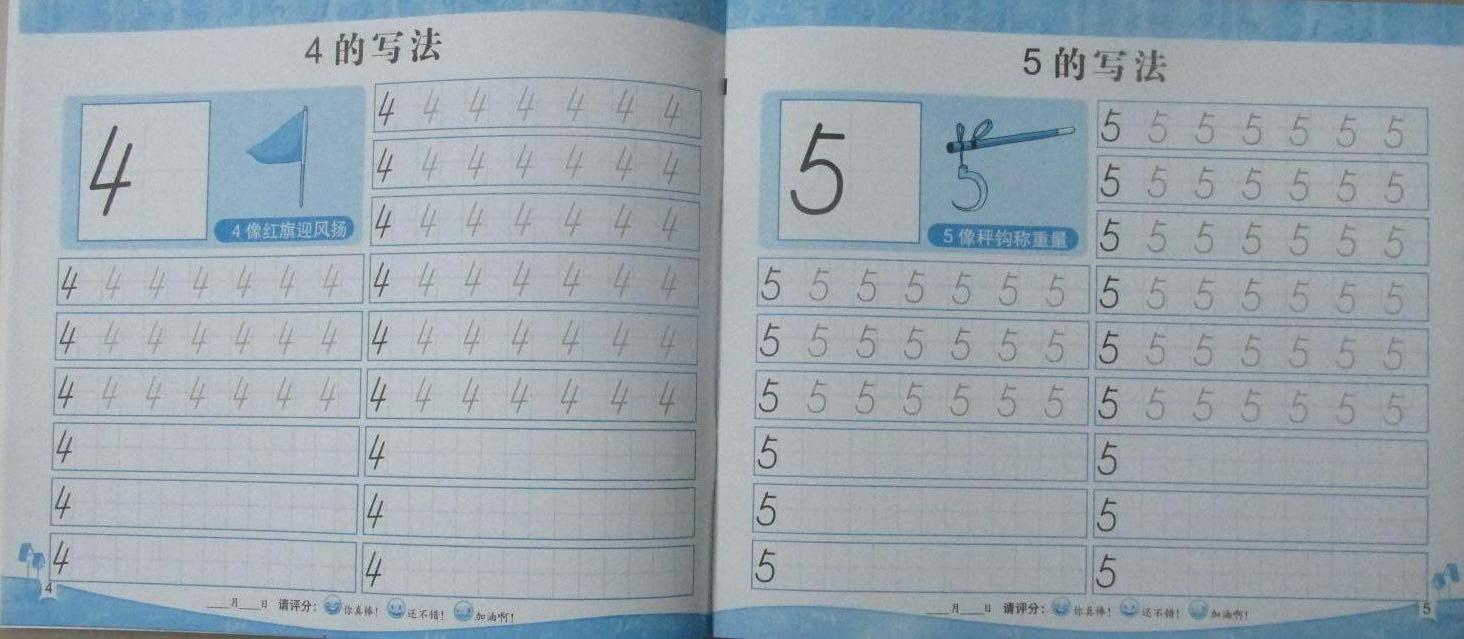 4的写法
4
4像红旗迎风扬
4 4 4 4 4 4 4
4 4 4 4 4 4 4
4 4 4 4 4 4 4
4 4 4 4 4 4 4
4 4 4 4 4 4 4
4 4 4 4 4 4 4
4 4 4 4 4 4 4
4 4 4 4 4 4 4
4 4 4 4 4 4 4
4
4
4
4
4
4
4
____月____日 请评分： 你真棒！ 还不错！ 加油啊！
5的写法
5
5
5像秤钩称重量
5 5 5 5 5 5 5
5 5 5 5 5 5 5
5 5 5 5 5 5 5
5 5 5 5 5 5 5
5 5 5 5 5 5 5
5 5 5 5 5 5 5
5 5 5 5 5 5 5
5 5 5 5 5 5 5
5 5 5 5 5 5 5
5
5
5
5
5
5
____月____日 请评分： 你真棒！ 还不错！ 加油啊！
5